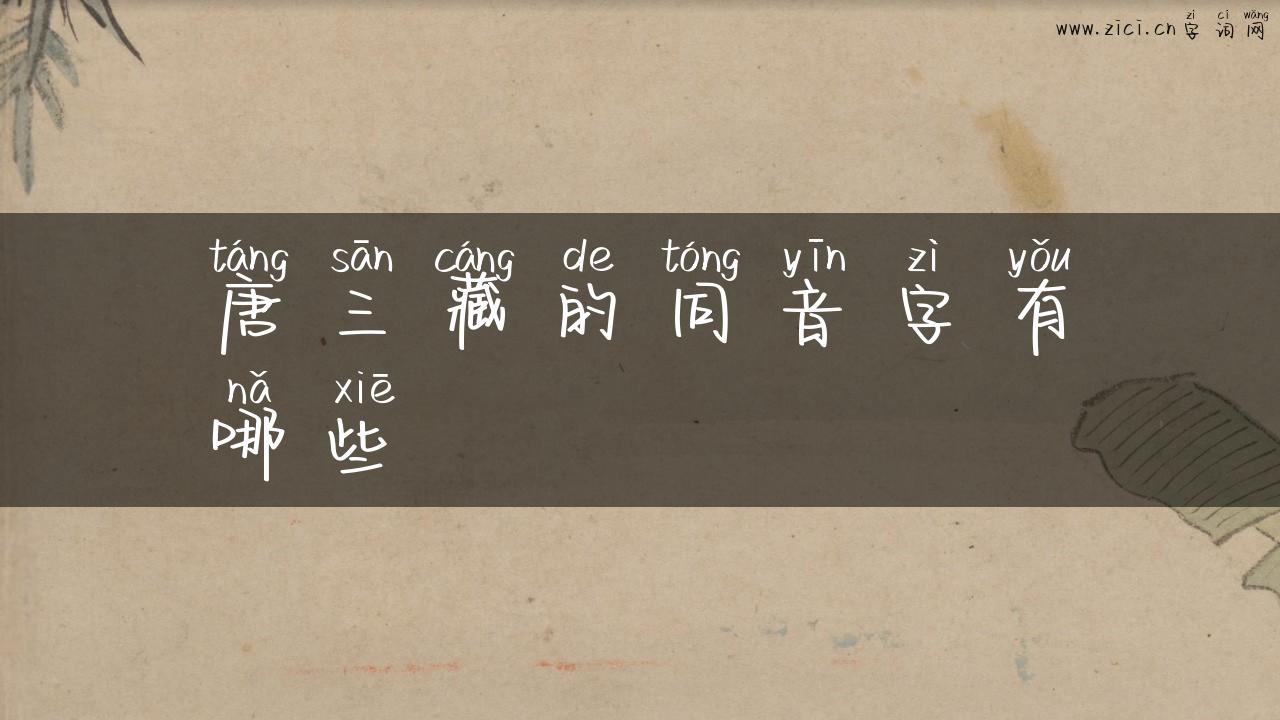 zì cí wǎng
www.zici.cn 字 词 网
táng sān cáng de tóng yīn zì yǒu
唐 三 藏 的 同 音 字 有
nǎ xiē
哪 些